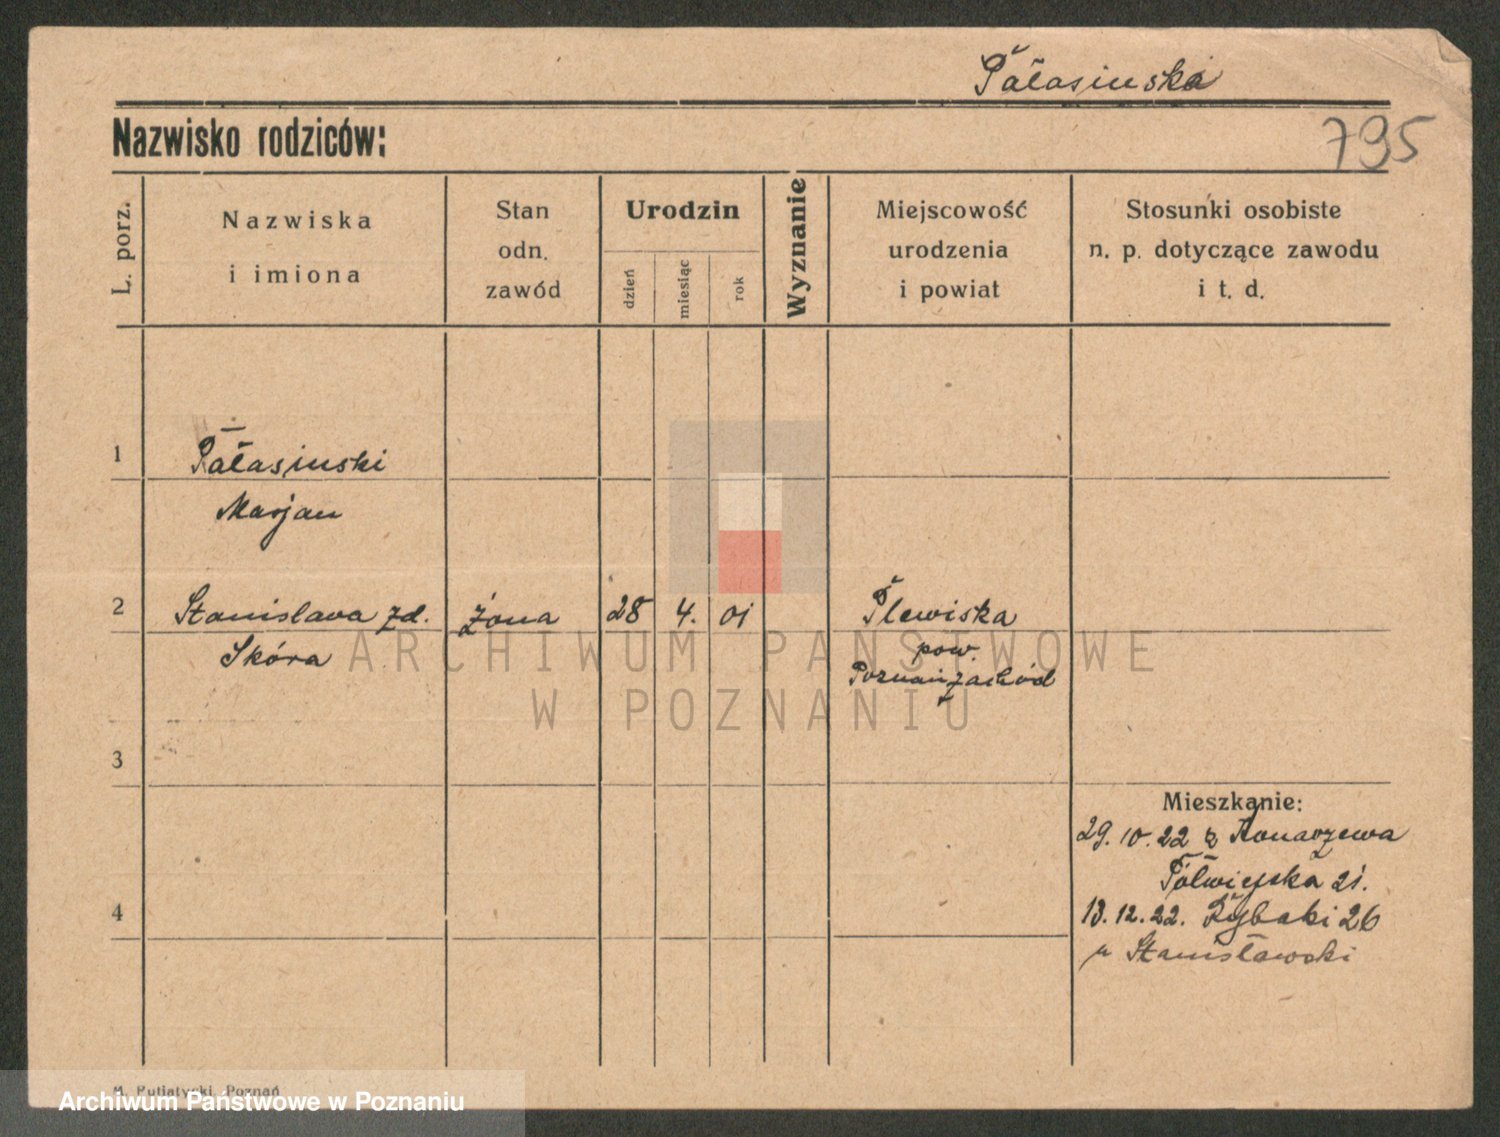 Pałasinska
795
Nazwisko rodziców:
L. porz.
Nazwiska
i imiona
Stan
odn.
zawód
Urodzin
dzień
miesiąc
rok
Wyznanie
Miejscowość
urodzenia
i powiat
Stosunki osobiste
n. p. dotyczące zawodu
i t. d.
1
Pałasinski
Marjan
2
Stanislava zd.
żona
28
4.
01
Plewiska
Skóra
pow.
Poznań zachód
ARCHIWUM PAŃSTWOWE
W POZNANIU
3
Mieszkanie:
29. 10. 22 z Konarzewa
Półwiejska 21.
4
13. 12. 22. Rybaki 26
u Stanisławski
M. Putiatycki, Poznań
Archiwum Państwowe w Poznaniu